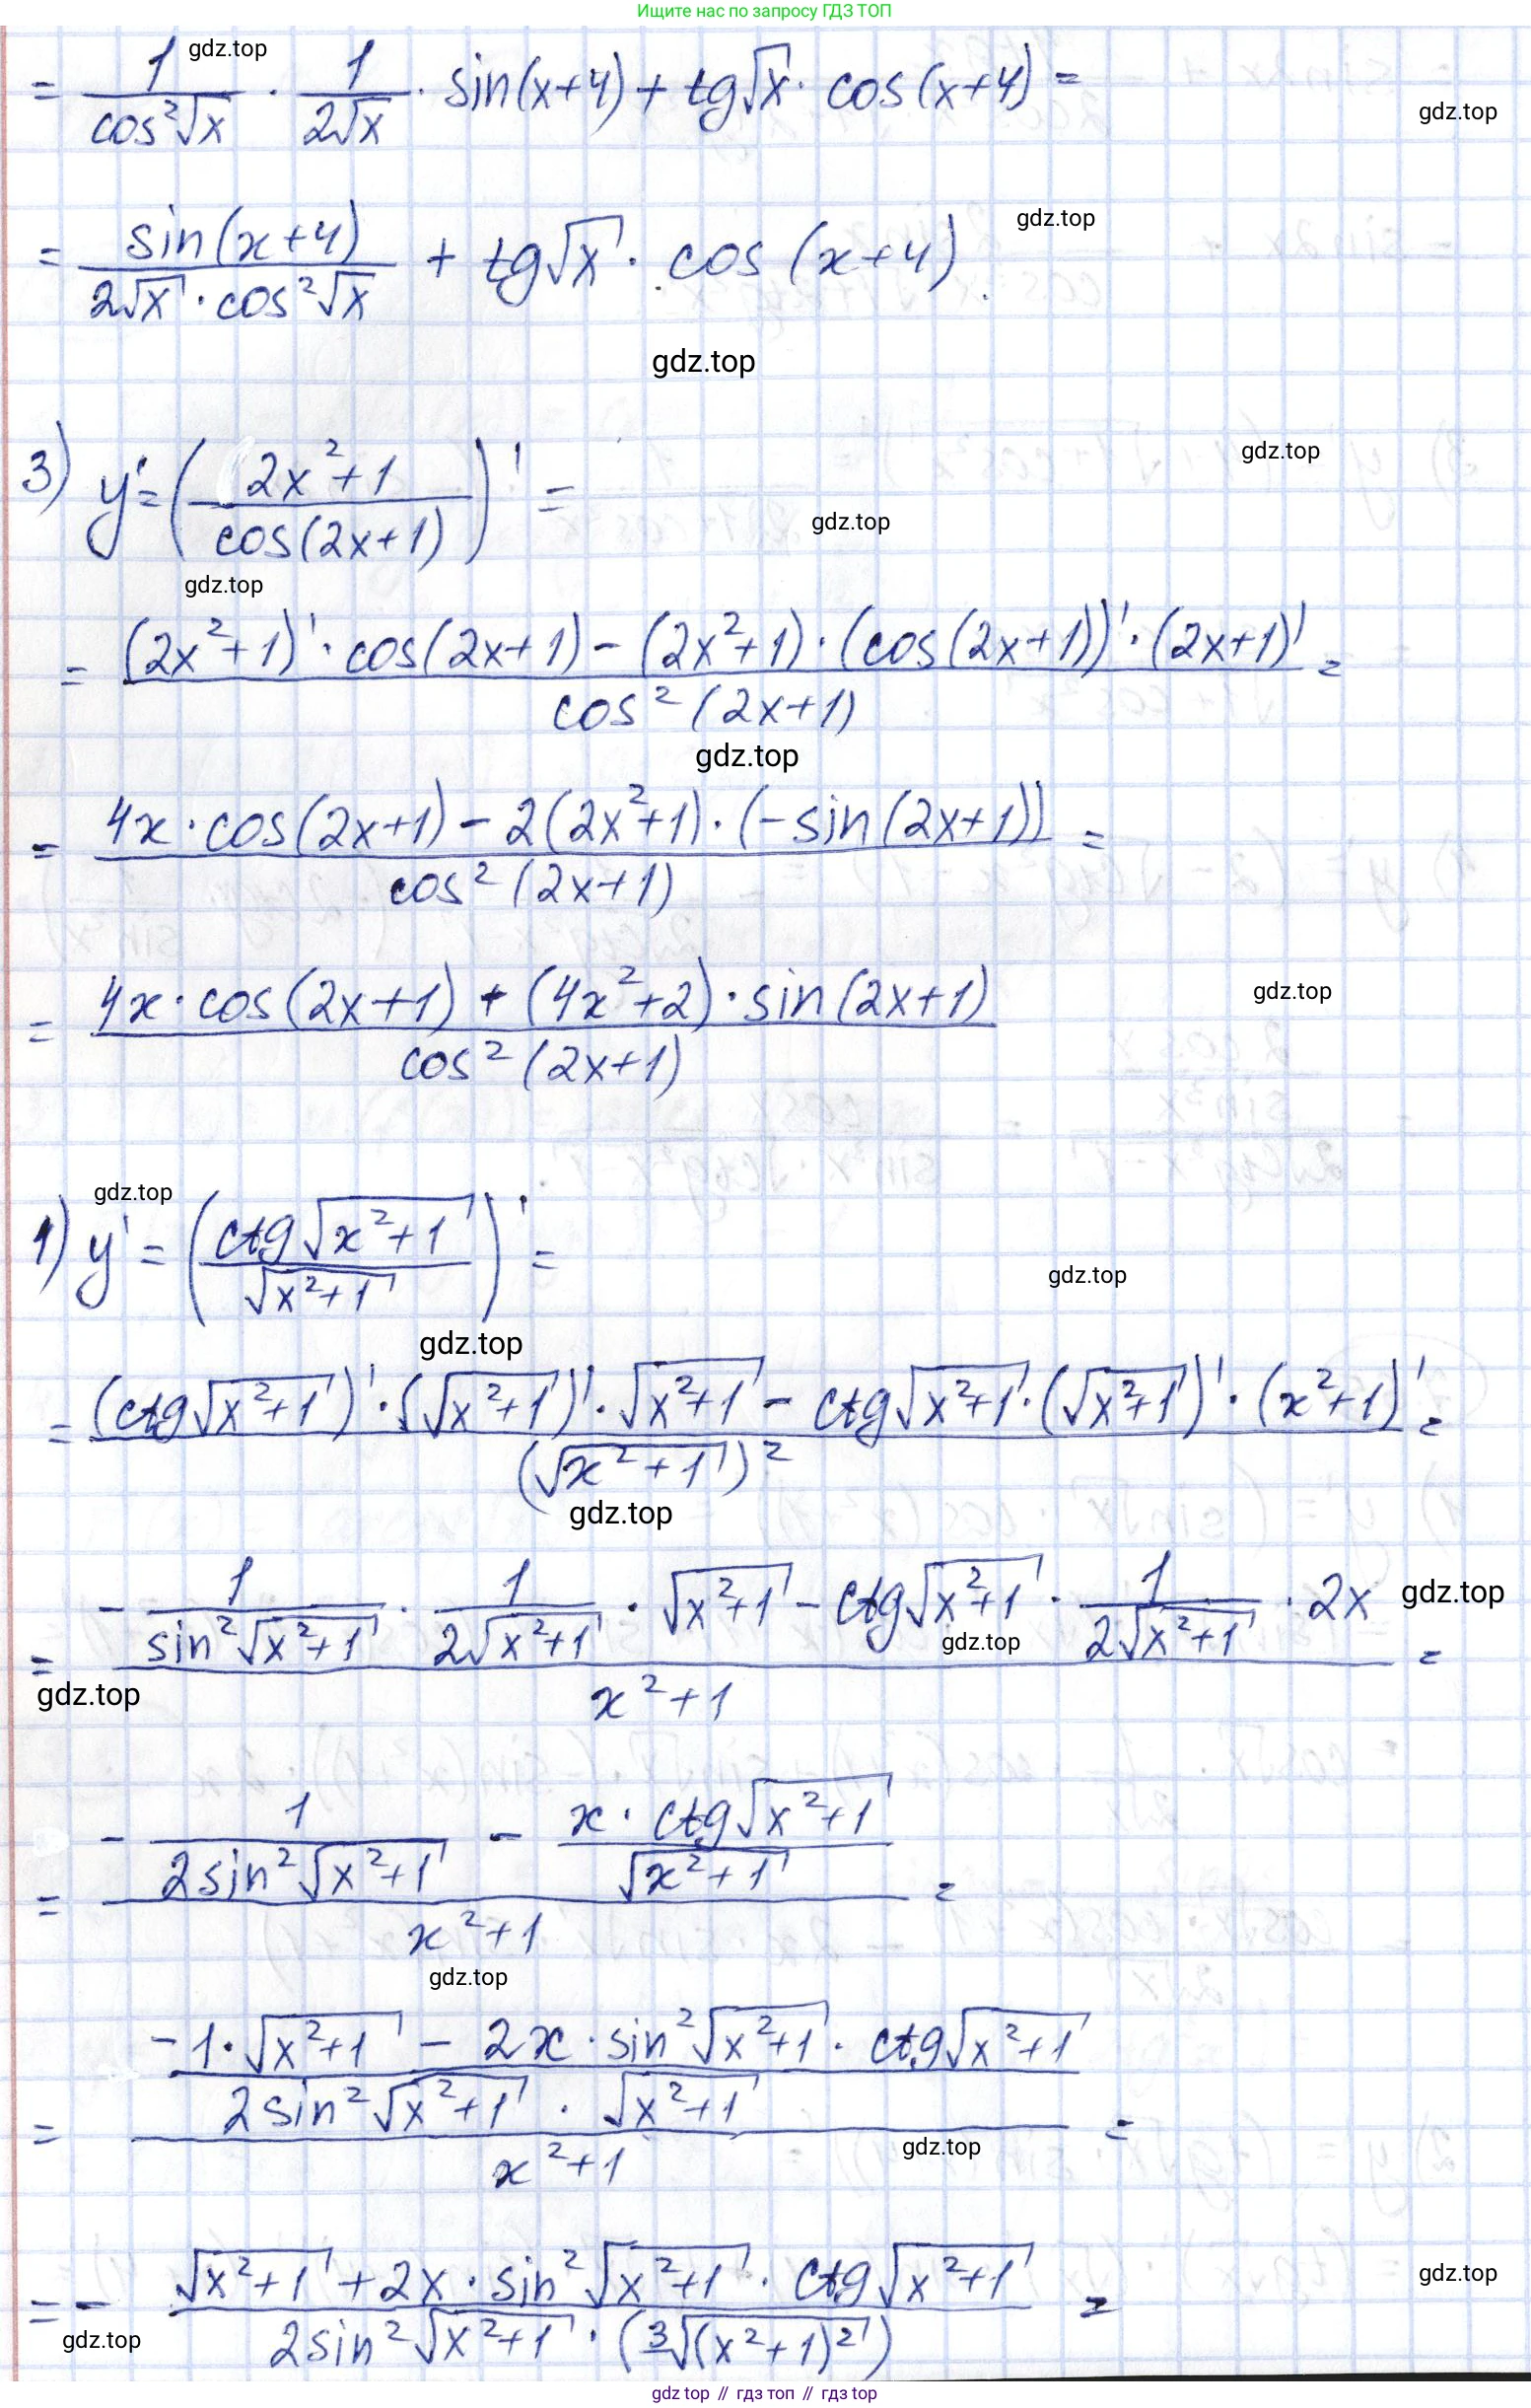 Ищите нас по запросу ГДЗ ТОП
= 1/(cos²√x) · 1/(2√x) · sin(x+4) + tg√x · cos(x+4) =
gdz.top
gdz.top
= sin(x+4)/(2√x · cos²√x) + tg√x · cos(x+4).
gdz.top
gdz.top
3) y' = ((2x²+1)/(cos(2x+1)))' =
gdz.top
gdz.top
gdz.top
= ((2x²+1)' · cos(2x+1) - (2x²+1) · (cos(2x+1))' · (2x+1)')/(cos²(2x+1)) =
gdz.top
= (4x · cos(2x+1) - 2(2x²+1) · (-sin(2x+1)))/(cos²(2x+1)) =
= (4x · cos(2x+1) + (4x²+2) · sin(2x+1))/(cos²(2x+1))
gdz.top
gdz.top
1) y' = ((ctg√(x²+1))/(√(x²+1)))' =
gdz.top
gdz.top
= ((ctg√(x²+1))' · (√(x²+1))' · √(x²+1) - ctg√(x²+1) · (√(x²+1))' · (x²+1)')/((√(x²+1))²) =
gdz.top
= (-1/(sin²√(x²+1)) · 1/(2√(x²+1)) · √(x²+1) - ctg√(x²+1) · 1/(2√(x²+1)) · 2x)/(x²+1) =
gdz.top
gdz.top
gdz.top
= (-1/(2sin²√(x²+1)) - (x · ctg√(x²+1))/(√(x²+1)))/(x²+1) =
gdz.top
= ((-1 · √(x²+1) - 2x · sin²√(x²+1) · ctg√(x²+1))/(2sin²√(x²+1) · √(x²+1)))/(x²+1) =
gdz.top
= - (√(x²+1) + 2x · sin²√(x²+1) · ctg√(x²+1))/(2sin²√(x²+1) · (³√((x²+1)²))) =
gdz.top
gdz.top
gdz top // гдз топ // гдз top